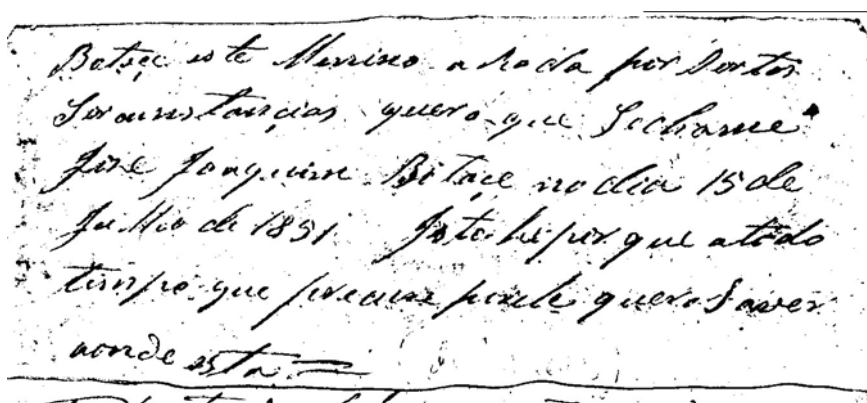 Botace este Menino a Roda por Sertas
Sircunstancias quero que Se chame
José Joaquim Botace no dia 15 de
Julho de 1851. Isto he por que a todo
tempo que percure parele quero Saver
aonde esta =